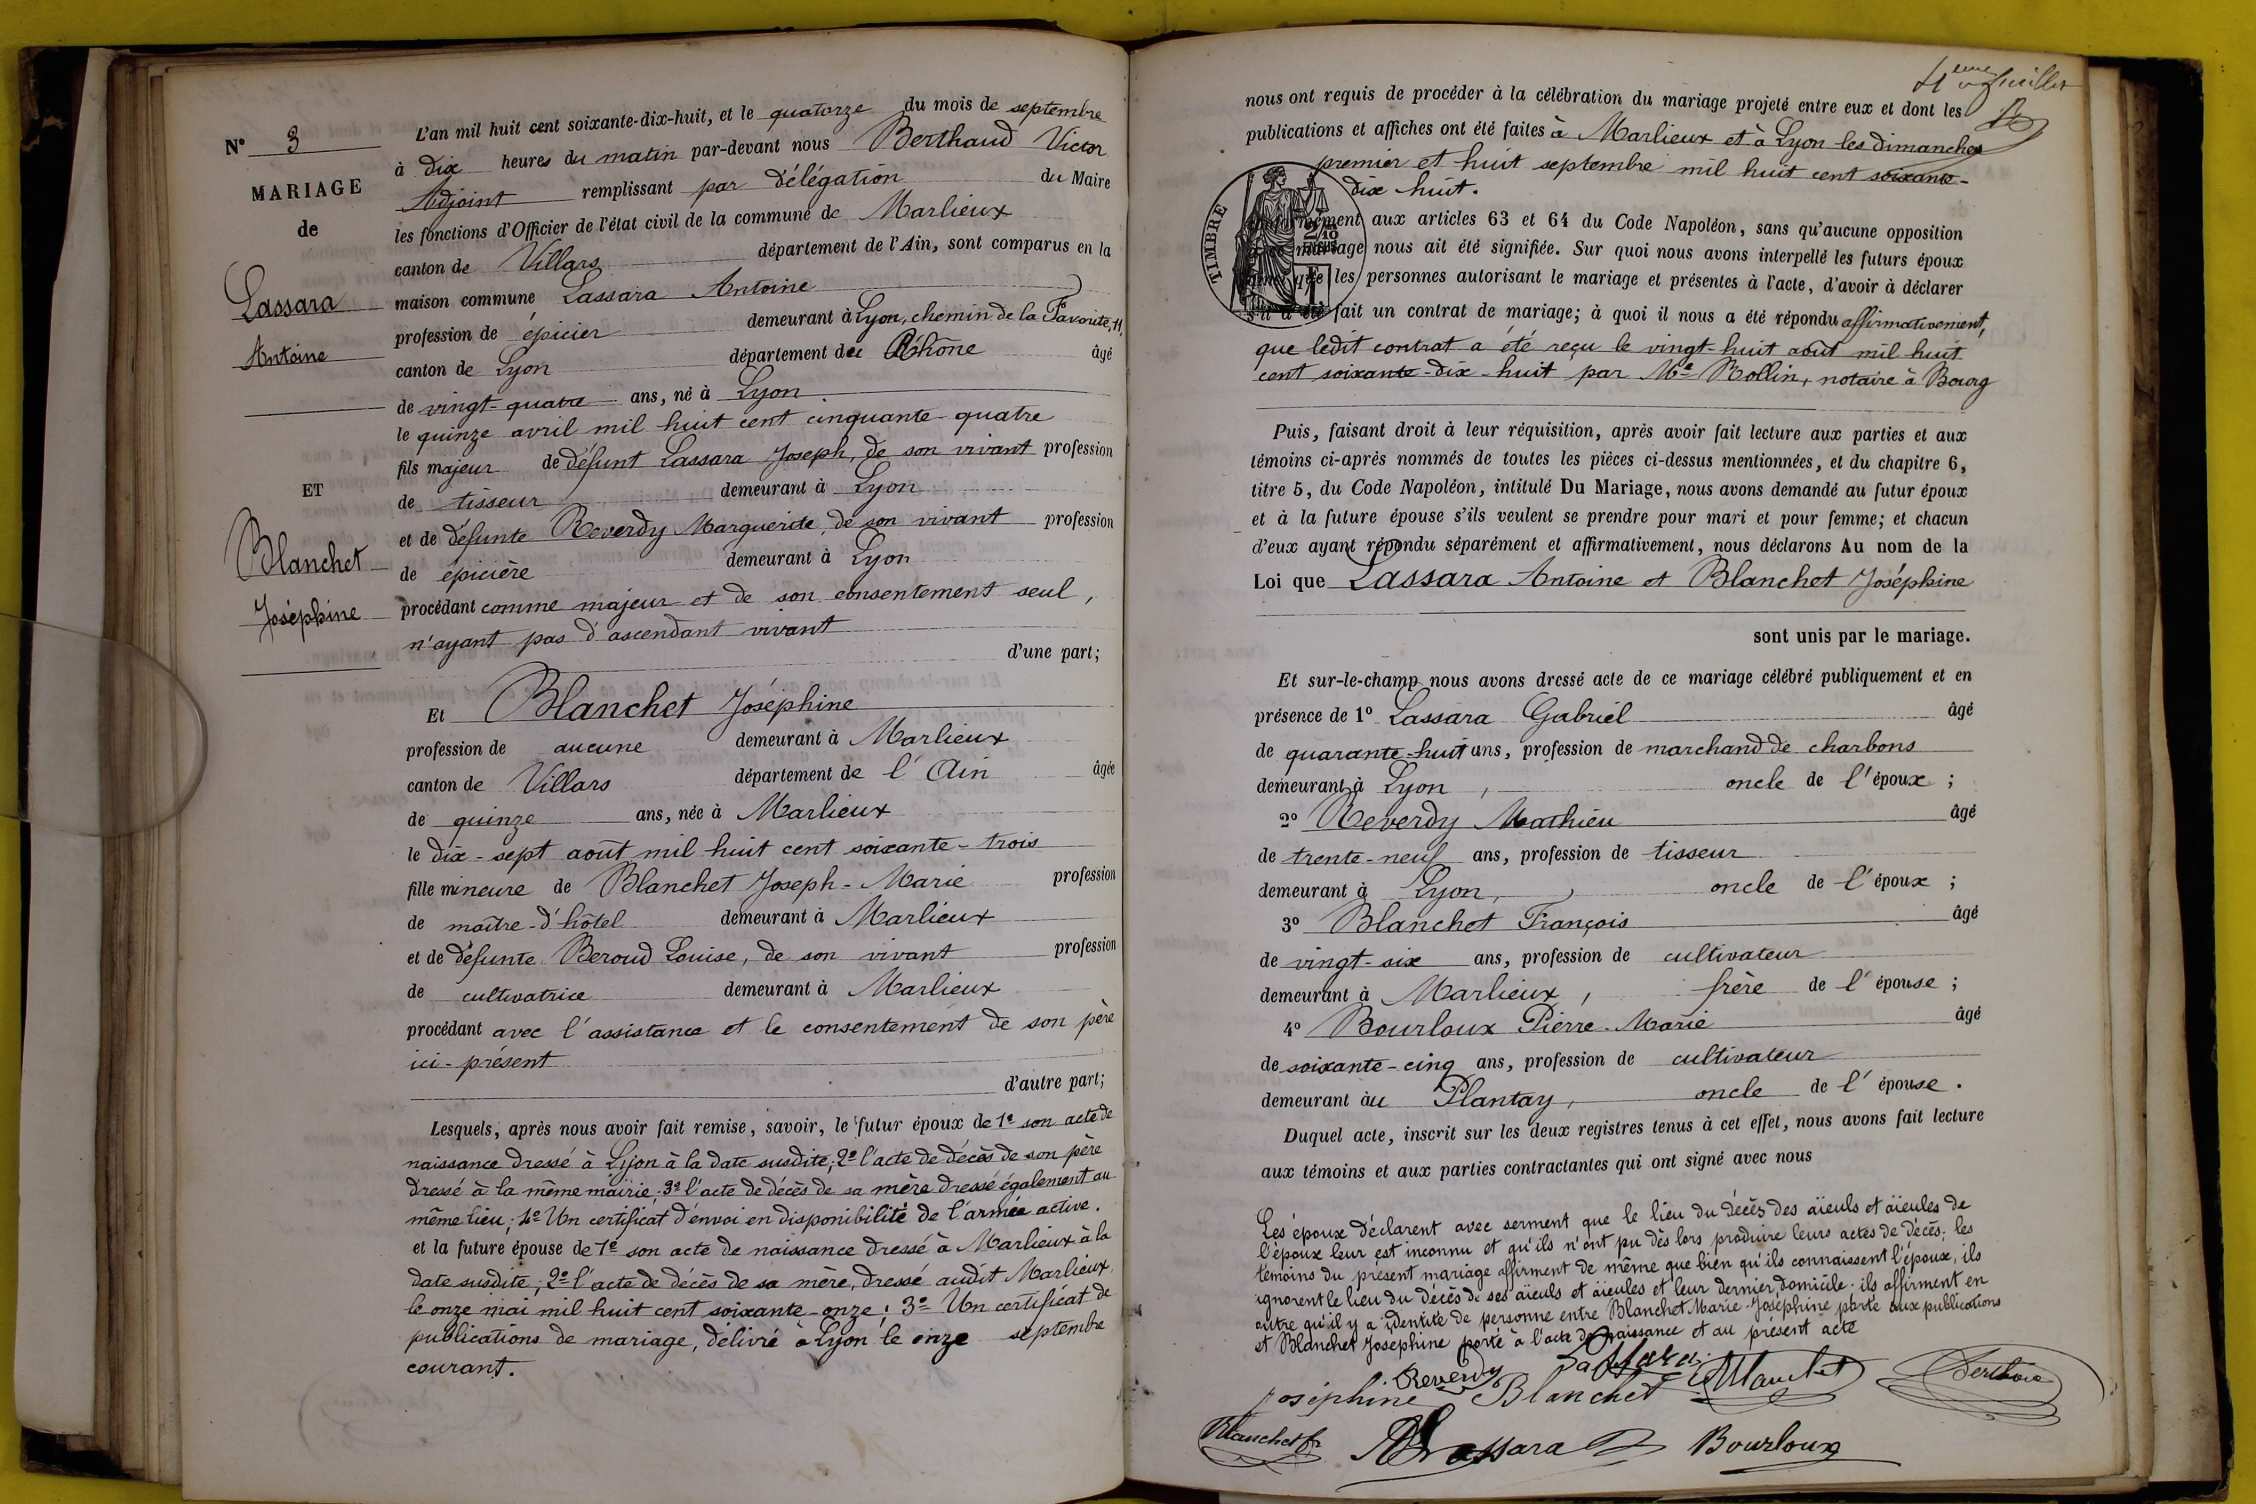 N° 3
MARIAGE
de
Lassara
Antoine
ET
Blanchet
Joséphine
L'an mil huit cent soixante-dix-huit, et le quatorze du mois de septembre
à dix heures du matin par-devant nous Berthaud Victor
Adjoint remplissant par délégation du Maire
les fonctions d'Officier de l'état civil de la commune de Marlieux
canton de Villars département de l'Ain, sont comparus en la
maison commune Lassara Antoine
profession de épicier demeurant à Lyon, chemin de la Favorite, 11,
canton de Lyon département du Rhône âgé
de vingt-quatre ans, né à Lyon
le quinze avril mil huit cent cinquante-quatre
fils majeur de défunt Lassara Joseph, de son vivant profession
de tisseur demeurant à Lyon
et de défunte Reverdy Marguerite, de son vivant profession
de épicière demeurant à Lyon
procédant comme majeur et de son consentement seul,
n'ayant pas d'ascendant vivant
d'une part;
Et Blanchet Joséphine
profession de aucune demeurant à Marlieux
canton de Villars département de l'Ain âgée
de quinze ans, née à Marlieux
le dix-sept août mil huit cent soixante-trois
fille mineure de Blanchet Joseph-Marie profession
de maître-d'hôtel demeurant à Marlieux
et de défunte Beroud Louise, de son vivant profession
de cultivatrice demeurant à Marlieux
procédant avec l'assistance et le consentement de son père
ici-présent
d'autre part;
Lesquels, après nous avoir fait remise, savoir, le futur époux de 1° son acte de
naissance dressé à Lyon à la date susdite; 2° l'acte de décès de son père
dressé à la même mairie; 3° l'acte de décès de sa mère dressé également au
même lieu; 4° Un certificat d'envoi en disponibilité de l'armée active.
et la future épouse de 1° son acte de naissance dressé à Marlieux à la
date susdite; 2° l'acte de décès de sa mère, dressé audit Marlieux,
le onze mai mil huit cent soixante-onze; 3° Un certificat de
publications de mariage, délivré à Lyon le onze septembre
courant.
4eme feuillet
nous ont requis de procéder à la célébration du mariage projeté entre eux et dont les
publications et affiches ont été faites à Marlieux et à Lyon les dimanches
premier et huit septembre mil huit cent soixante-
dix huit.
TIMBRE
aux articles 63 et 64 du Code Napoléon, sans qu'aucune opposition
mariage nous ait été signifiée. Sur quoi nous avons interpellé les futurs époux
que les personnes autorisant le mariage et présentes à l'acte, d'avoir à déclarer
s'il a été fait un contrat de mariage; à quoi il nous a été répondu affirmativement,
que ledit contrat a été reçu le vingt-huit août mil huit
cent soixante-dix-huit par Me Rollin, notaire à Bourg
Puis, faisant droit à leur réquisition, après avoir fait lecture aux parties et aux
témoins ci-après nommés de toutes les pièces ci-dessus mentionnées, et du chapitre 6,
titre 5, du Code Napoléon, intitulé Du Mariage, nous avons demandé au futur époux
et à la future épouse s'ils veulent se prendre pour mari et pour femme; et chacun
d'eux ayant répondu séparément et affirmativement, nous déclarons Au nom de la
Loi que Lassara Antoine et Blanchet Joséphine
sont unis par le mariage.
Et sur-le-champ nous avons dressé acte de ce mariage célébré publiquement et en
présence de 1° Lassara Gabriel âgé
de quarante-huit ans, profession de marchand de charbons
demeurant à Lyon, oncle de l'époux;
2° Reverdy Mathieu âgé
de trente-neuf ans, profession de tisseur
demeurant à Lyon, oncle de l'époux;
3° Blanchet François âgé
de vingt-six ans, profession de cultivateur
demeurant à Marlieux, frère de l'épouse;
4° Bourloux Pierre-Marie âgé
de soixante-cinq ans, profession de cultivateur
demeurant au Plantay, oncle de l'épouse.
Duquel acte, inscrit sur les deux registres tenus à cet effet, nous avons fait lecture
aux témoins et aux parties contractantes qui ont signé avec nous
Les époux déclarent avec serment que le lieu du décès des aïeuls et aïeules de
l'époux leur est inconnu et qu'ils n'ont pu dès lors produire leurs actes de décès; les
témoins du présent mariage affirment de même que bien qu'ils connaissent l'époux, ils
ignorent le lieu du décès de ses aïeuls et aïeules et leur dernier domicile. ils affirment en
outre qu'il y a identité de personne entre Blanchet Marie-Joséphine porté aux publications
et Blanchet Joséphine porté à l'acte de naissance et au présent acte
Reverdy Lassara Blanchet
Joséphine Blanchet
Blanchet fr Lassara Bourloux